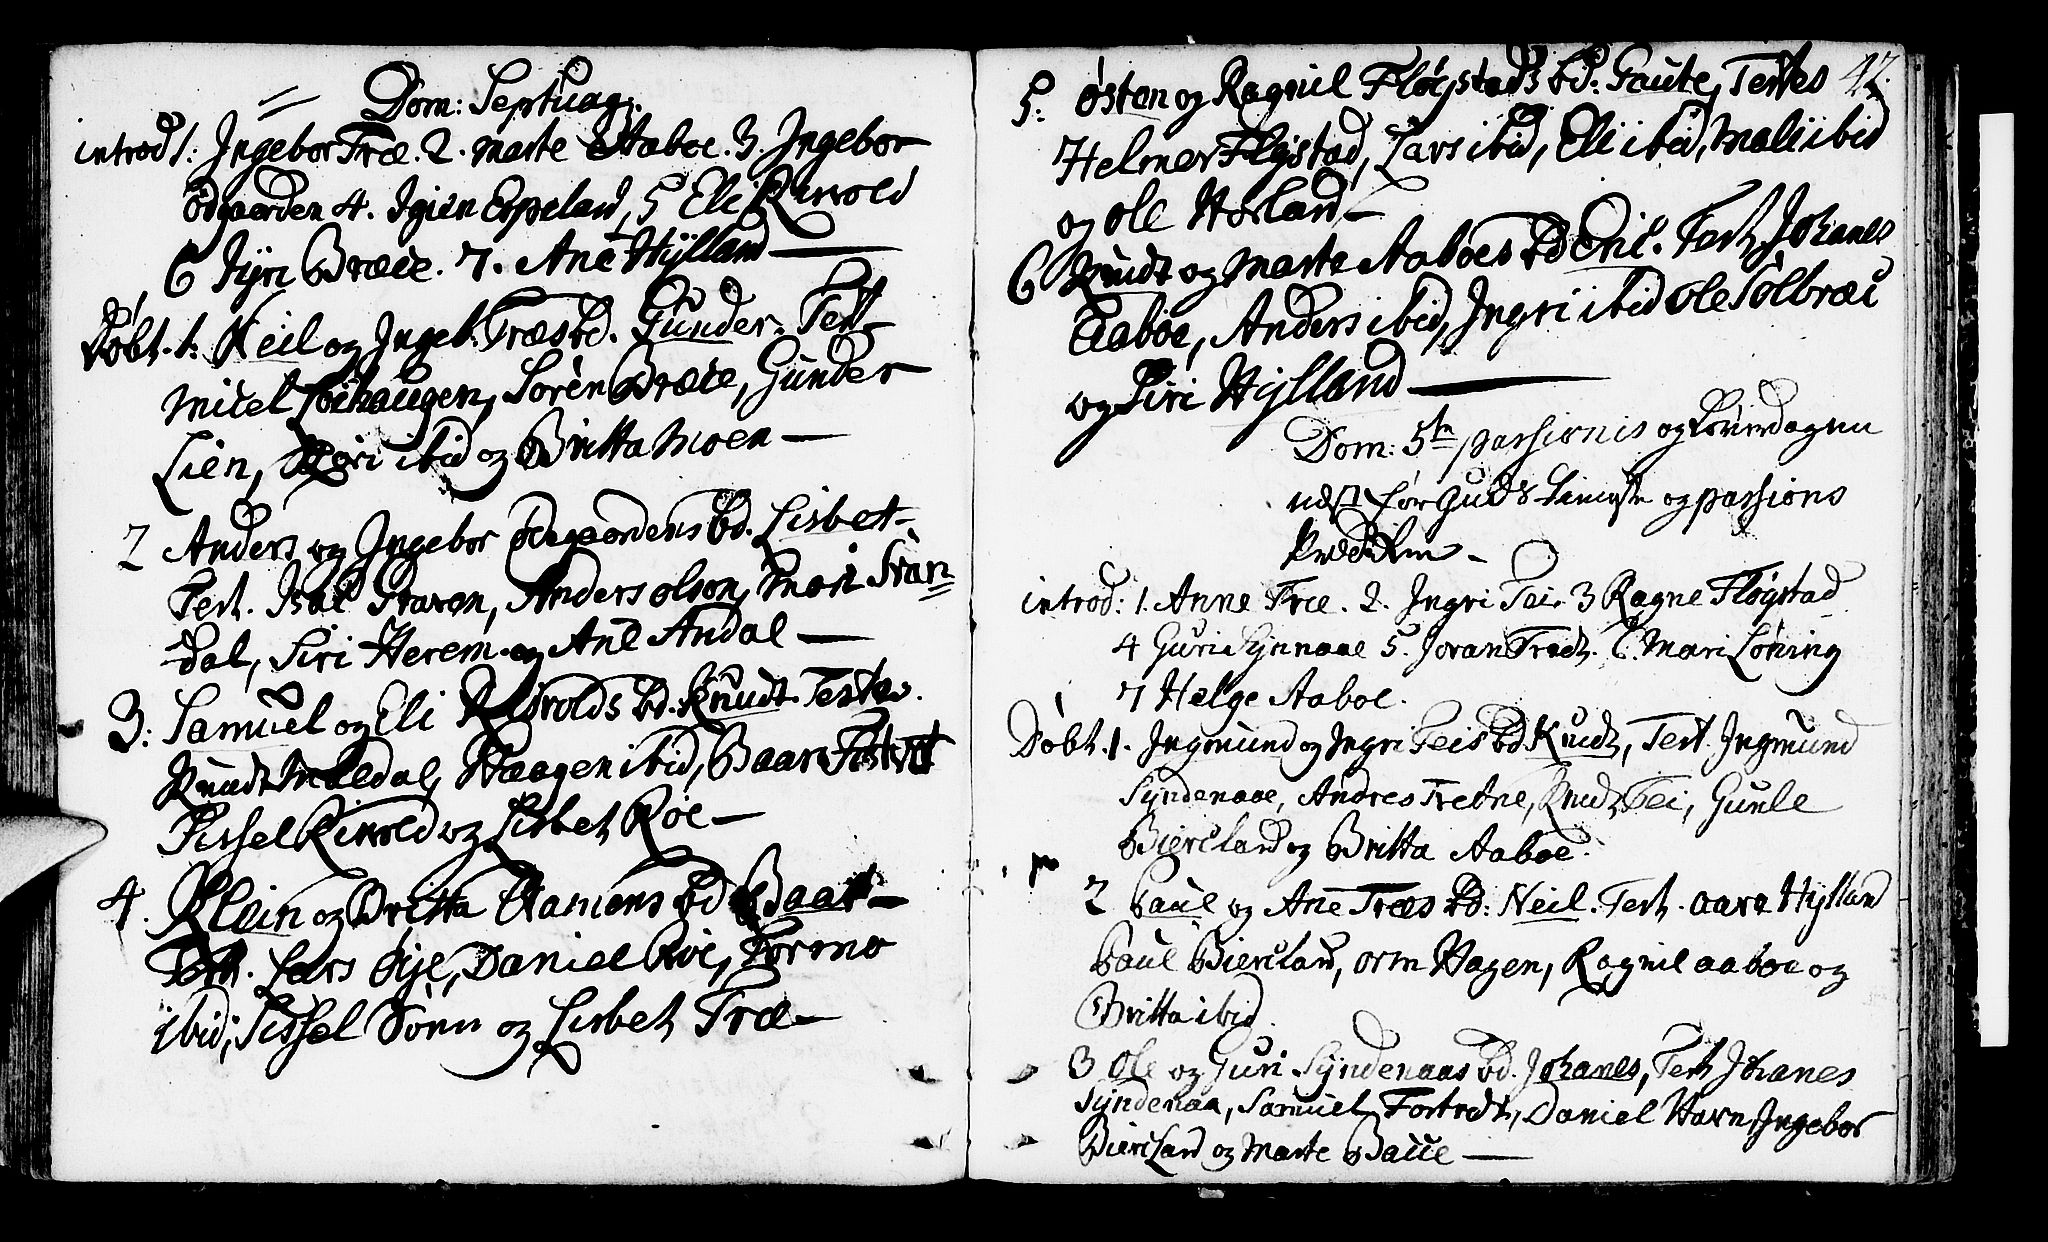 Dom: Septuag:
introd 1: Ingebor Træ. 2. Marte Aaboe. 3. Ingebor
Ødgaarden 4. Igien Espeland, 5 Eli Rivold
6 Syri Bræe. 7. Ane Hylland
Døbt. 1: Neil og Ingeb: Træs bd. Gunder. Test
Micel Søren Bræe, Gunder
Lien, ibid og Britta Moen
2 Anders og Ingebor Ødegaardens bd. Lisbet
Test. Anders Olson,
dal, Siri Herem og Ane Andal
3: Samuel og Eli Rivolds bd. Knudt Testes.
Knudt Mældal, Haagen ibid, Baar
Sissel Rivold og Lisbet Roe
4. Klein og Britta bd Baar
Test. Lars Øye, Daniel Roe, Tormo
ibid, Sissel Sønn og Lisbet Træ
42.
5: Østen og Ragnil Fløgstads bd: Gaute, Testes
Helmer Fløgstad, Lars ibid, Eli ibid, Mali ibid
og Ole Horland
6 Knudt og Marte Aaboes bd Eric. Test Johanes
Aaboe, Anders ibid, Ingri ibid Ole Sølbræe
og Siri Hylland
Dom: 5te passionis og Løverdagen
næst før Guds tieneste og passions
Prædiken
introd: 1. Anne Træ. 2. Ingri Tei. 3 Ragne Fløgstad
4 Guri Synnaae 5. Joran 6. Mari Løning
7 Helge Aaboe.
Døbt. 1. Ingmund og Ingri Teis bd Knudt, Test. Ingmund
Syndenaae, Andres Tretne, Knudt Tei, Gunle
Biercland og Britta Aaboe.
2 Paul og Ane Træs bd: Neil. Test. Aare Hylland
Paul Biercland, Orm Hagen, Ragnil Aaboe og
Britta ibid.
3 Ole og Guri Syndenaas bd. Johanes, Test Johanes
Syndenaa, Samuel Daniel Havn, Ingebor
Biercland og Marte Baue